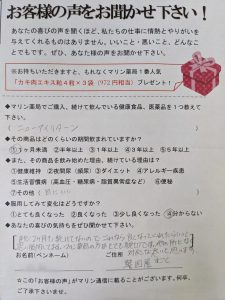 お客様の声をお聞かせ下さい！
あなたの喜びの声を聞くほど、私たちの仕事に情熱とやりがいを
与えてくれるものはありません。いいこと・悪いこと、どんなこ
とでもです。ぜひ、あなた様の声をお聞かせ下さい。
※お持ちいただきますと、もれなくマリン薬局１番人気
「カキ肉エキス粒４粒×３袋（972円相当）プレゼント！
◆マリン薬局でご購入、続けて飲んでいる健康食品、医薬品を１つ教えて
下さい。
◆その商品はどのくらいの期間飲まれていますか？
①３ヶ月未満 ②半年以上 ③１年以上 ④３年以上 ⑤５年以上
◆また、その商品を飲み始めた理由、続けている理由は？
①健康維持 ②疲労感（疲れ） ③ダイエット ④アレルギー疾患
⑤生活習慣病（高血圧・糖尿病・脂質異常症など） ⑥便秘
⑦その他（
◆服用してみて変化はどうですか？
①とても良くなった ②良くなった ③少し良くなった ④分からない
◆あなたの喜びの気持ちをぜひ聞かせて下さい。
◆お名前（ペンネーム） ご住所
☆この「お客様の声」がマリン通信に載ることがございます。何卒、
ご了承下さいませ。